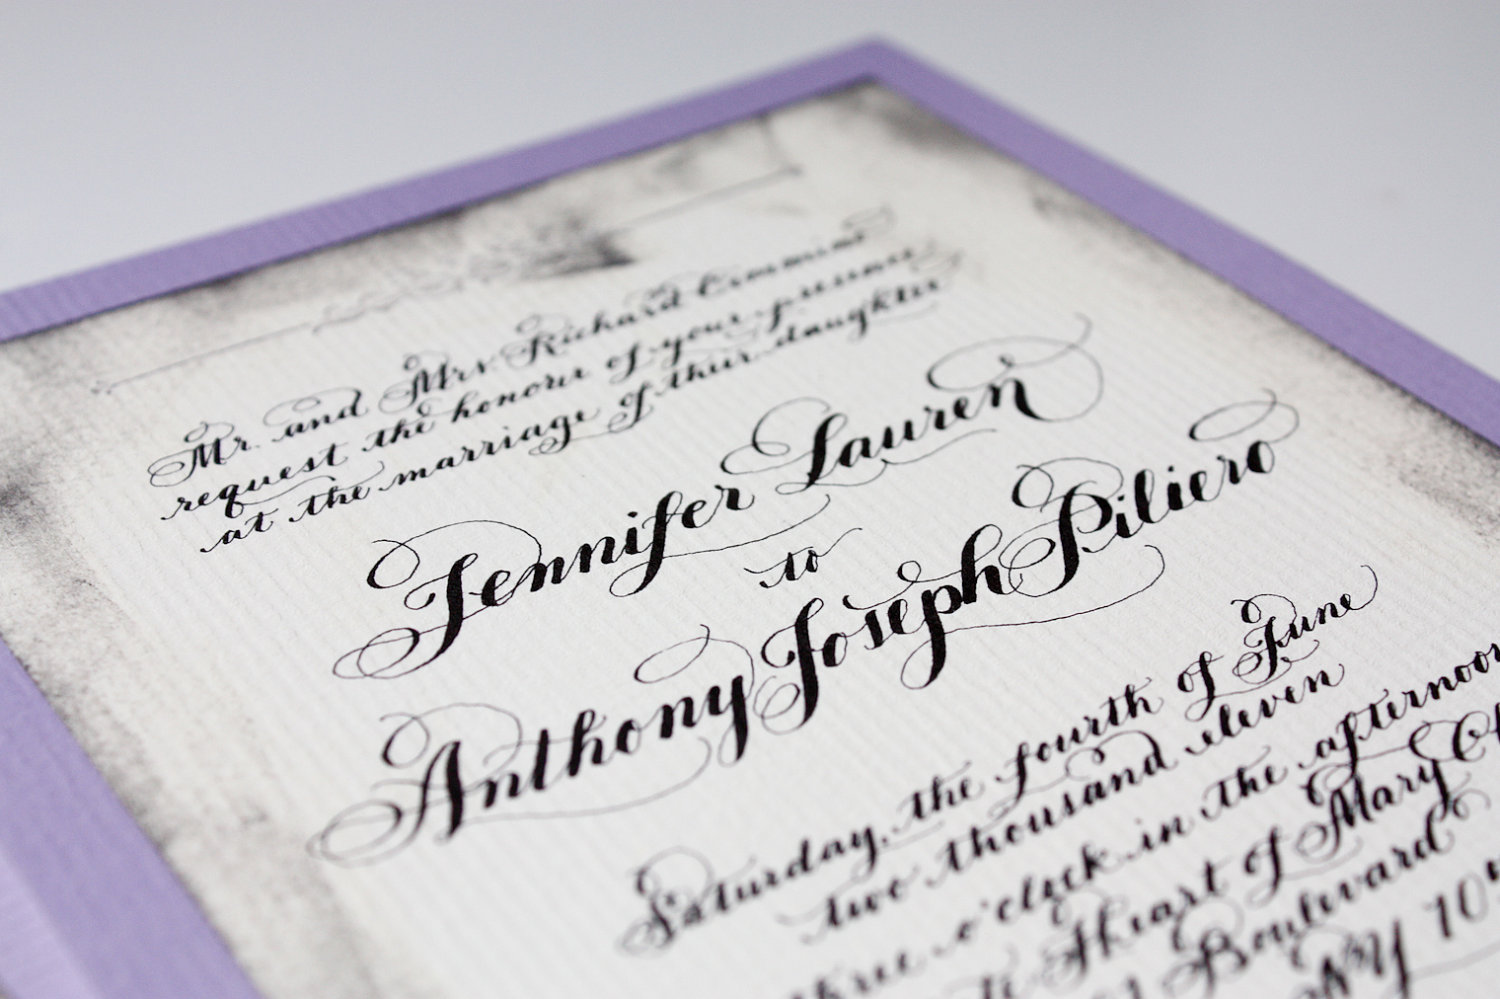 Mr. and Mrs. Richard Cimmini
request the honour of your presence
at the marriage of their daughter
Jennifer Lauren
to
Anthony Joseph Piliero
Saturday, the fourth of June
two thousand eleven
three o'clock in the afternoon
Heart of Mary
Boulevard
NY 10